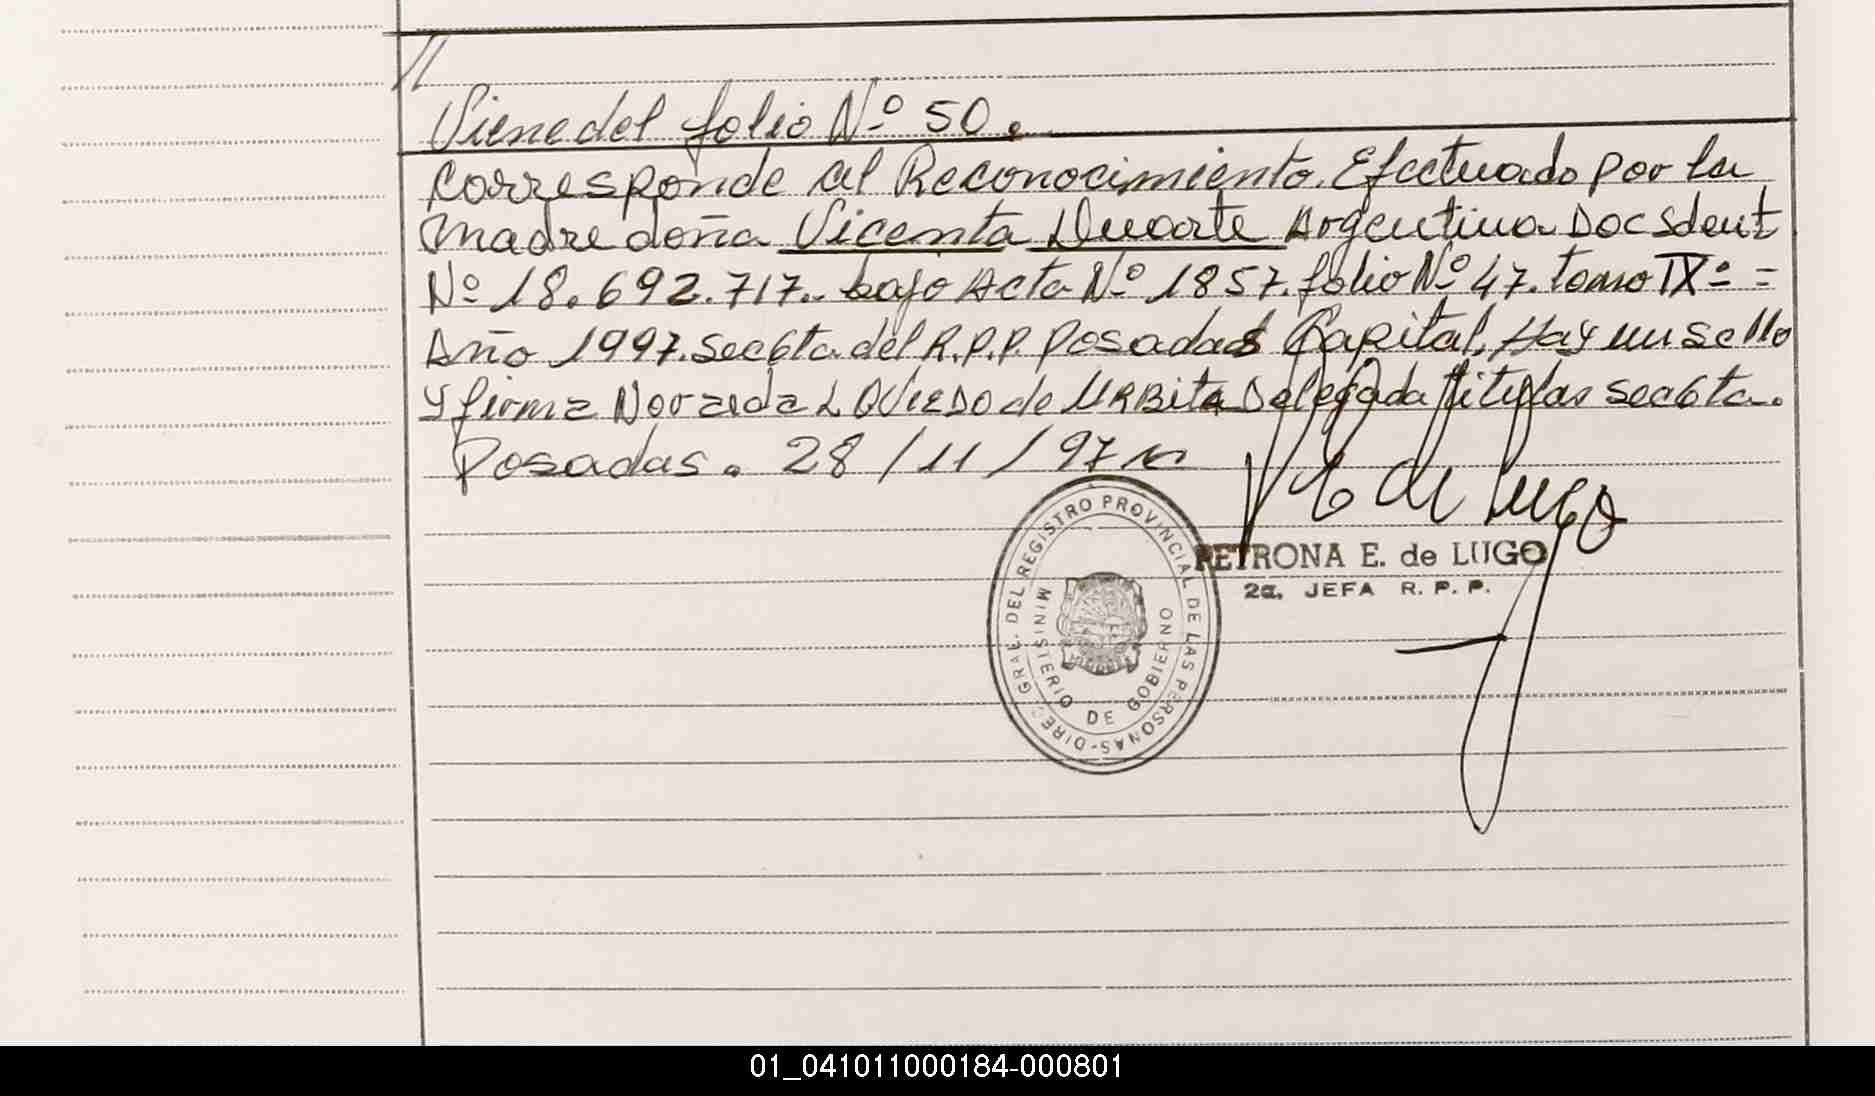 //
Viene del folio Nº 50.
Corresponde al Reconocimiento. Efectuado por la
madre doña Vicenta Duarte Argentina Doc Ident
Nº 18.692.717.. bajo Acta Nº 1857. folio Nº 47. tomo IXº =
Año 1997. Sec 6ta del R.P.P. Posadas Capital. Hay un sello
y firma L OVIEDO de URBita Delegada Titular Sec 6ta.
Posadas. 28/11/97
DIREC. GRAL. DEL REGISTRO PROVINCIAL DE LAS PERSONAS
MINISTERIO DE GOBIERNO
PETRONA E. de LUGO
2a. JEFA R. P. P.
01_041011000184-000801